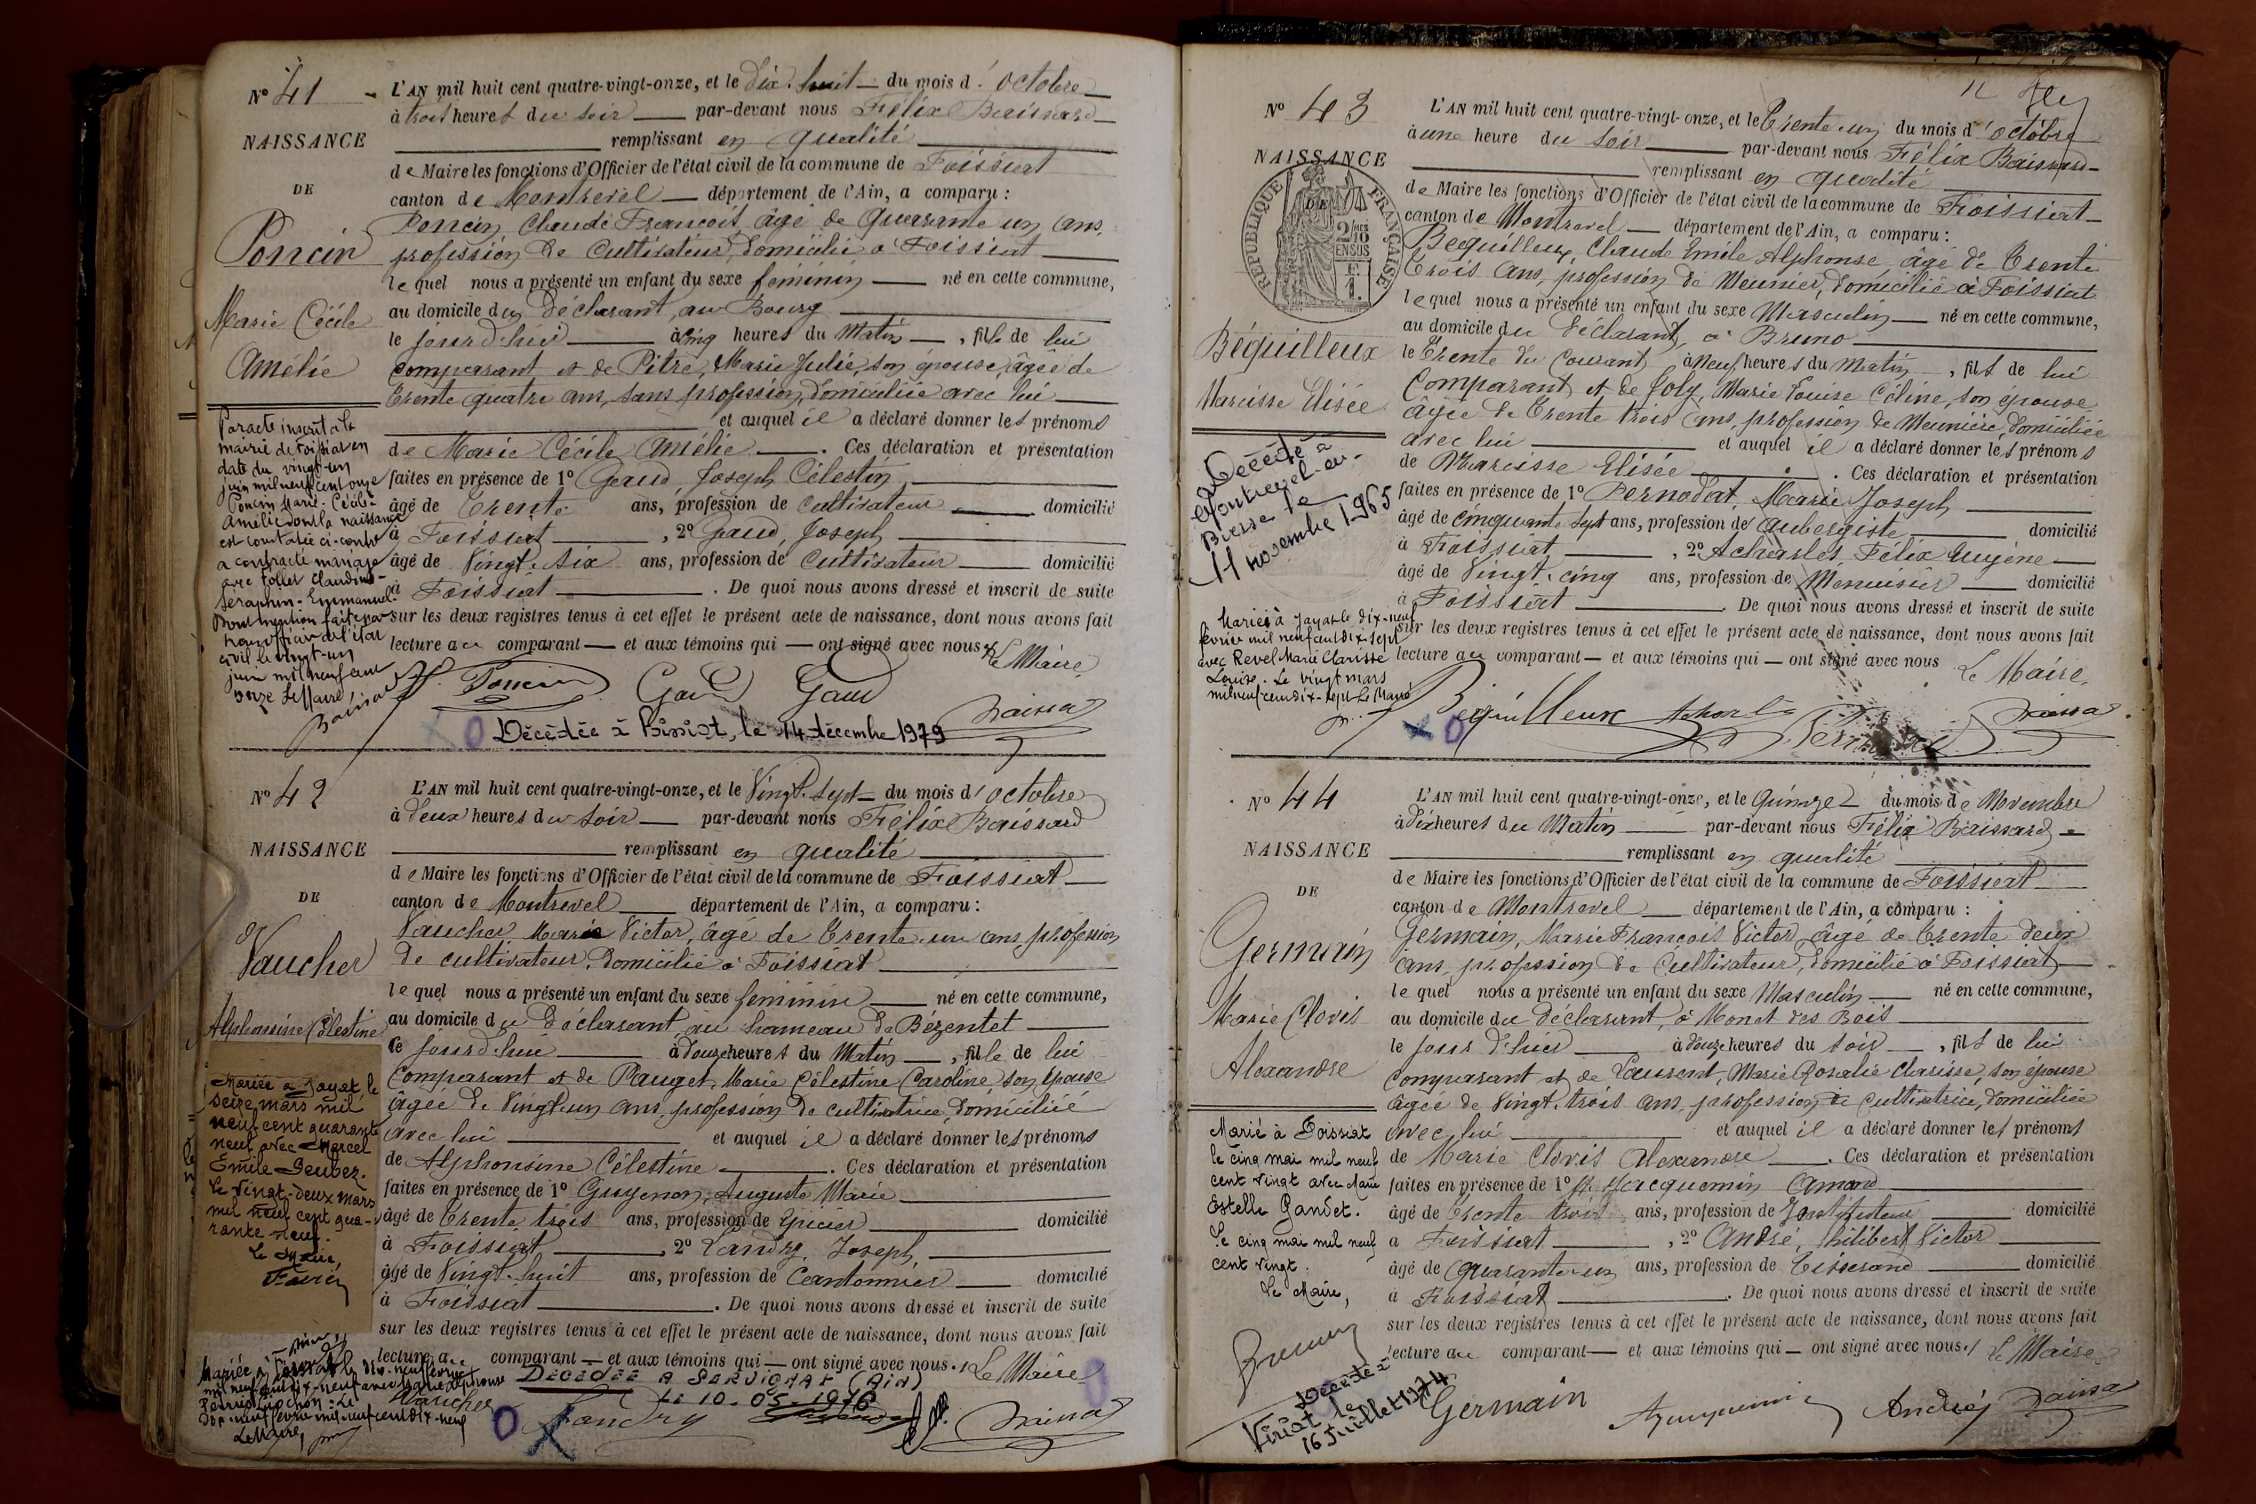 N° 41
NAISSANCE
DE
Poncin
Marie Cécile
Amélie
L'AN mil huit cent quatre-vingt-onze, et le dix-huit du mois d'octobre
à trois heures du soir par-devant nous Félix Baissard
remplissant en qualité
de Maire les fonctions d'Officier de l'état civil de la commune de Foissiat
canton de Montrevel département de l'Ain, a comparu :
Poncin, Claude François, âgé de Quarante un ans,
profession de Cultivateur, domicilié à Foissiat
lequel nous a présenté un enfant du sexe féminin né en cette commune,
au domicile du Déclarant, au Bourg
le jourd'hui à cinq heures du Matin, fille de lui
comparant et de Pitre, Marie Julie, son épouse, âgée de
Trente quatre ans, sans profession, domiciliée avec lui
et auquel il a déclaré donner les prénoms
de Marie Cécile Amélie. Ces déclaration et présentation
faites en présence de 1° Gaud, Joseph Célestin
âgé de Trente ans, profession de cultivateur domicilié
à Foissiat, 2° Gaud, Joseph
âgé de Vingt-six ans, profession de cultivateur domicilié
à Foissiat. De quoi nous avons dressé et inscrit de suite
sur les deux registres tenus à cet effet le présent acte de naissance, dont nous avons fait
lecture au comparant et aux témoins qui ont signé avec nous. Le Maire
Poncin Gaud Gaud
Par acte inscrit à la
mairie de Foissiat en
date du vingt-un
juin mil neuf cent onze
Poncin Marie-Cécile-
Amélie dont la naissance
est constatée ci-contre
a contracté mariage
avec Claudius-
Séraphin-Emmanuel.
Dont mention faite par
nous officier de l'état
civil le vingt-un
juin mil neuf cent
onze Le Maire,
Décédée à Bissiat, le 14 décembre 1979
N° 42
NAISSANCE
DE
Vaucher
Alphonsine Célestine
L'AN mil huit cent quatre-vingt-onze, et le Vingt-sept du mois d'octobre
à deux heures du soir par-devant nous Félix Baissard
remplissant en qualité
de Maire les fonctions d'Officier de l'état civil de la commune de Foissiat
canton de Montrevel département de l'Ain, a comparu :
Vaucher Marie Victor, âgé de Trente un ans, profession
de cultivateur, domicilié à Foissiat
lequel nous a présenté un enfant du sexe féminin né en cette commune,
au domicile du Déclarant, au hameau de Bézentet
le jourd'hui à douze heures du Matin, fille de lui
Comparant et de Pauget, Marie Célestine Caroline, son épouse
âgée de Vingt-un ans, profession de cultivatrice, domiciliée
avec lui et auquel il a déclaré donner les prénoms
de Alphonsine Célestine. Ces déclaration et présentation
faites en présence de 1° Guyenon, Auguste Marie
âgé de Trente trois ans, profession de Epicier domicilié
à Foissiat, 2° Landry, Joseph
âgé de Vingt-huit ans, profession de Cantonnier domicilié
à Foissiat. De quoi nous avons dressé et inscrit de suite
sur les deux registres tenus à cet effet le présent acte de naissance, dont nous avons fait
lecture a comparant et aux témoins qui ont signé avec nous. Le Maire
Mariée à Jayat le
seize mars mil
neuf cent quarante
neuf avec Marcel
Émile
le vingt-deux mars
mil neuf cent qua-
rante neuf.
Le Maire,
Mariée à Foissiat le dix-neuf février
mil neuf cent dix-neuf avec
Le
dix-neuf février mil neuf cent dix-neuf
Le Maire,
DÉCÉDÉE A SERVIGNAT (Ain)
LE 10.05.1976
Vaucher
Landry
N° 43
NAISSANCE
DE
RÉPUBLIQUE FRANÇAISE
2/10 EN SUS
Béquilleux
Narcisse Elisée
L'AN mil huit cent quatre-vingt-onze, et le Trente-un du mois d'octobre
à une heure du soir par-devant nous Félix Baissard
remplissant en qualité
de Maire les fonctions d'Officier de l'état civil de la commune de Foissiat
canton de Montrevel département de l'Ain, a comparu :
Bequilleux, Claude Emile Alphonse, âgé de Trente
Trois ans, profession de Meunier, domicilié à Foissiat
lequel nous a présenté un enfant du sexe Masculin né en cette commune,
au domicile du Déclarant, à Bruno
le Trente du Courant, à Neuf heures du Matin, fils de lui
Comparant et de Joly, Marie Louise Céline, son épouse
âgée de Trente trois ans, profession de Meunière, domiciliée
avec lui et auquel il a déclaré donner les prénoms
de Narcisse Elisée. Ces déclaration et présentation
faites en présence de 1° Pernodat, Marie Joseph
âgé de cinquante sept ans, profession de aubergiste domicilié
à Foissiat, 2° Acharles, Félix Eugène
âgé de Vingt-cinq ans, profession de Menuisier domicilié
à Foissiat. De quoi nous avons dressé et inscrit de suite
sur les deux registres tenus à cet effet le présent acte de naissance, dont nous avons fait
lecture au comparant et aux témoins qui ont signé avec nous Le Maire,
Béquilleux
Décédé à
Montrevel-en-
Bresse le
11 novembre 1965
Marié à Jayat le dix-neuf
février mil neuf cent dix-sept
avec Revel Marie Clarisse
Louise. Le vingt mars
mil neuf cent dix-sept Le Maire
N° 44
NAISSANCE
DE
Germain
Marie Clovis
Alexandre
L'AN mil huit cent quatre-vingt-onze, et le Quinze du mois de Novembre
à dix heures du Matin par-devant nous Félix Baissard
remplissant en qualité
de Maire les fonctions d'Officier de l'état civil de la commune de Foissiat
canton de Montrevel département de l'Ain, a comparu :
Germain, Marie François Victor, âgé de Trente deux
ans, profession de Cultivateur, domicilié à Foissiat
lequel nous a présenté un enfant du sexe Masculin né en cette commune,
au domicile du déclarant, à Monet des Bois
le jour d'hier à douze heures du soir, fils de lui
comparant et de Laurent, Marie Rosalie Clarisse, son épouse
âgée de Vingt-trois ans, profession de cultivatrice, domiciliée
avec lui et auquel il a déclaré donner les prénoms
de Marie Clovis Alexandre. Ces déclaration et présentation
faites en présence de 1° Jacquemin Amand
âgé de Trente trois ans, profession de Instituteur domicilié
à Foissiat, 2° André, Philibert Victor
âgé de Quarante-un ans, profession de Tisserand domicilié
à Foissiat. De quoi nous avons dressé et inscrit de suite
sur les deux registres tenus à cet effet le présent acte de naissance, dont nous avons fait
lecture au comparant et aux témoins qui ont signé avec nous. Le Maire
Germain André
Marié à Foissiat
le cinq mai mil neuf
cent vingt avec Marie
Estelle Pandet.
Le cinq mai mil neuf
cent vingt.
Le Maire,
Décédé à
Viriat le
16 Juillet 1974